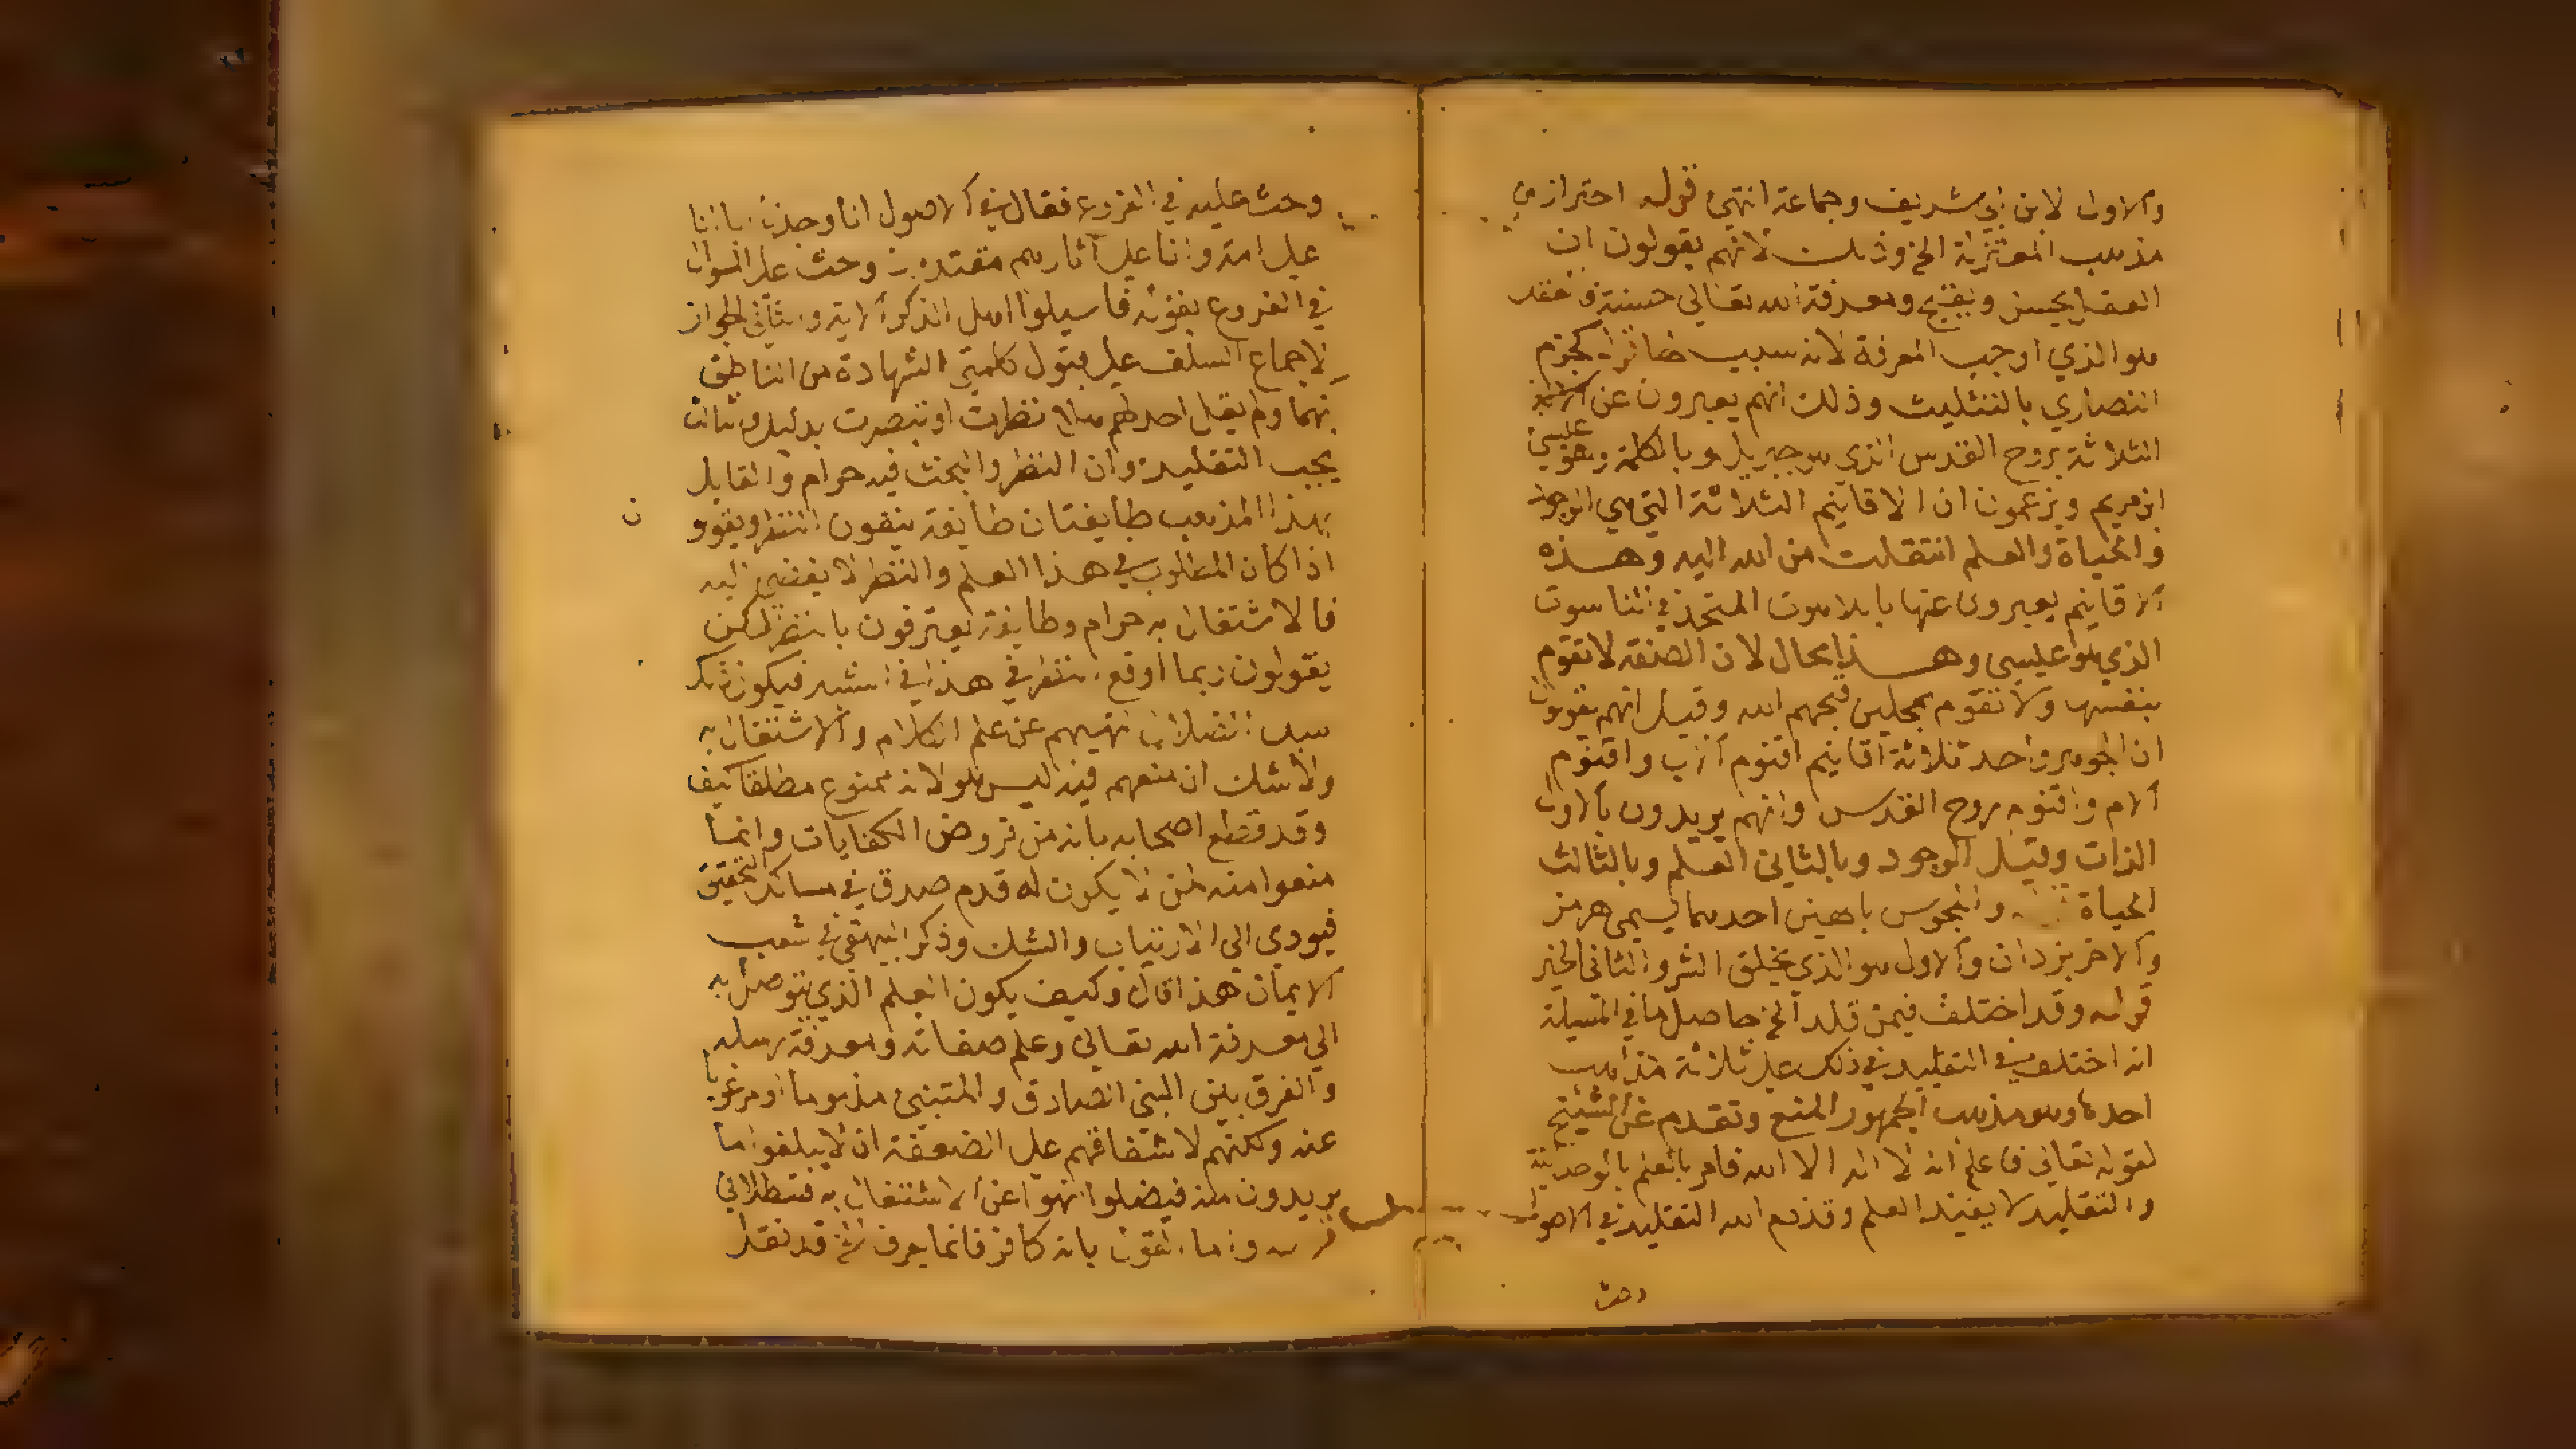 والاول لابن ابي شريف وجماعة انتهى قوله احتراز من
مذهب المعتزلة الخ وذلك لانهم يقولون ان
العقل يحسن ويقبح ومعرفة الله تعالى حسنة
هو الذي اوجب المعرفة لانه سبب كجزم
النصاري بالتثليث وذلك انهم يعبرون عن
الثلاثة بروح القدس الذي هو جبريل وبالكلمة وهو عيسى
ابن مريم ويزعمون ان الاقانيم الثلاثة التي هي الوجود
والحياة والعلم انتقلت من الله اليه وهذه
الاقانيم يعبرون عنها باللاهوت المتحد في الناسوت
الذي هو عيسى وهذا محال لان الصفة لا تقوم
بنفسها ولا تقوم بمحلين قبحهم الله وقيل انهم يقولون
ان الجوهر واحد ثلاثة اقانيم اقنوم الاب واقنوم
الام واقنوم روح القدس وانهم يريدون بالاول
الذات وقيل الوجود وبالثاني العلم وبالثالث
الحياة والمجوس بالهين احدهما يسمى هرمز
والاخر يزدان والاول هو الذي يخلق الشر والثاني الخير
قوله وقد اختلف فيمن قلد الخ حاصل ما في المسيلة
انه اختلف في التقليد في ذلك على ثلاثة مذاهب
احدها وهو مذهب الجمهور المنع وتقدم عن الشيخ
لقوله تعالى فاعلم انه لا اله الا الله فامر بالعلم بالوحدانية
والتقليد لا يفيد العلم وقد ذم الله التقليد في الاصول
وحث
وحث عليه في الفروع فقال في الاصول انا وجدنا اباءنا
على امة وانا على آثارهم مقتدون وحث على السوال
في الفروع بقوله فاسيلوا اهل الذكر الاية والثاني الجواز
لاجماع السلف على قبول كلمتي الشهادة من الناطق
بهما ولم يقل احد لهم هلا نظرت او تبصرت بدليل والثالث
يجب التقليد وان النظر والبحث فيه حرام والقايل
بهذا المذهب طايفتان طايفة ينفون النظر ويقولون
اذا كان المطلوب في هذا العلم والنظر لا يفضي اليه
فالاشتغال به حرام وطايفة يعترفون بالنظر لكن
يقولون ربما اوقع النظر في هذا في الشبه فيكون ذلك
سبب الضلال نهيهم عن علم الكلام والاشتغال به
ولا شك ان منعهم فيه ليس هو لانه ممنوع مطلقا كيف
وقد قطع اصحابه بانه من فروض الكفايات وانما
منعوا منه لمن لا يكون له قدم صدق في مسالك التحقيق
فيودي الى الارتياب والشك وذكر البيهقي في شعب
الايمان هذا قال وكيف يكون العلم الذي يتوصل به
الي معرفة الله تعالى وعلم صفاته ومعرفة رسله
والفرق بين النبي الصادق والمتنبي مذموما او مرغوبا
عنه ولكنهم لاشفاقهم على الضعفة ان لا يبلغوا ما
يريدون منه فيضلوا نهوا عن الاشتغال به
واما القول بانه كافر فانما يعرف